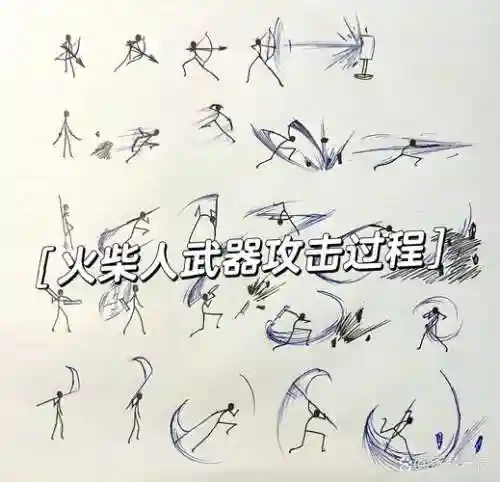 [火柴人武器攻击过程]